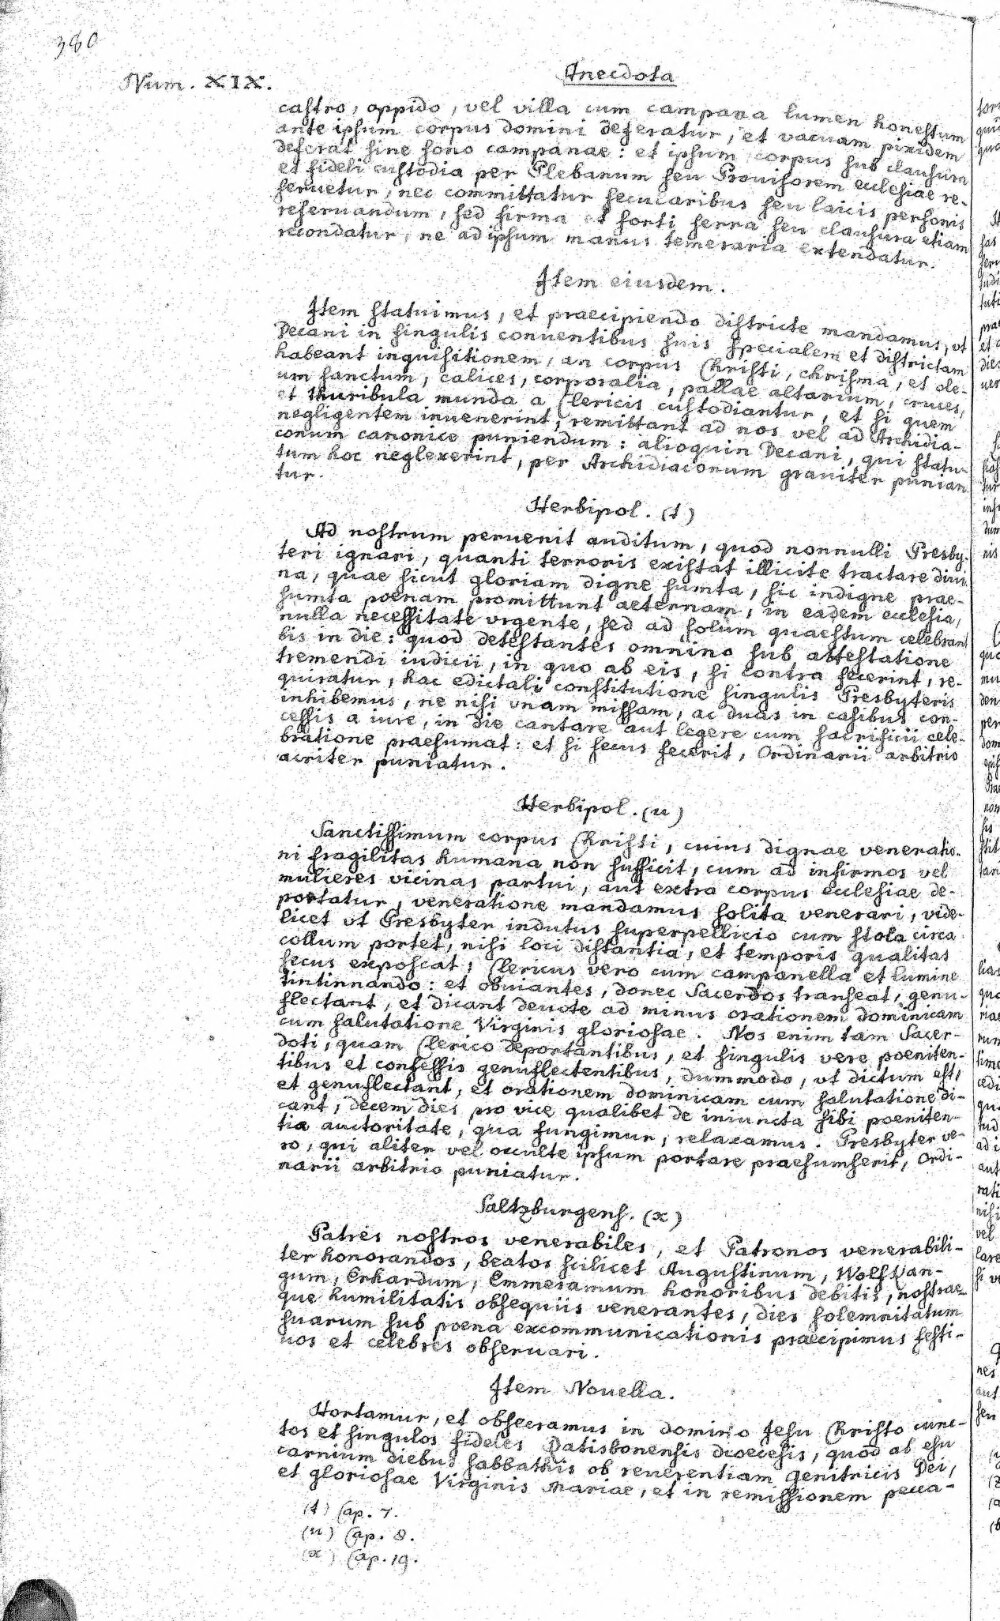 380
Num. XIX.
Anecdota
castro, oppido, vel villa cum campana lumen honestum
ante ipsum corpus domini deferatur, et vacuam pixidem
deferat sine sono campanae: et ipsum corpus sub clausura
et fideli custodia per Plebanum seu Prouisorem ecclesiae re-
seruetur, nec committatur secucaribus seu laicis personis
reseruandum, sed firma et forti serra seu clausura etiam
recondatur, ne ad ipsum manus temeraria extendatur.
Item eiusdem.
Item statuimus, et praecipiendo districte mandamus, vt
Decani in singulis conventibus suis specialem et districtam
habeant inquisitionem, an corpus Christi, chrisma, et ole-
um sanctum, calices, corporalia, pallae altarium, cruces,
et thuribula munda a Clericis custodiantur, et si quem
negligentem invenerint, remittant ad nos vel ad Archidia-
conum canonice puniendum: alioquin Decani, qui statu-
tum hoc neglexerint, per Archidiaconum graviter punian
tur.
Herbipol. (t)
Ad nostrum peruenit auditum, quod nonnulli Presby-
teri ignari, quanti terroris existat illicite tractare divi-
na, quae sicut gloriam digne sumta, sic indigne prae-
sumta poenam promittunt aeternam, in eadem ecclesia,
nulla necessitate vrgente, sed ad solum quaestum celebrant
bis in die: quod detestantes omnino sub attestatione
tremendi iudicii, in quo ab eis, si contra fecerint, re-
quiratur, hac edictali constitutione singulis Presbyteris
inhibemus, ne nisi vnam missam, ac duas in casibus con-
cessis a iure, in die cantare aut legere cum sacrificii cele-
bratione praesumat: et si secus fecerit, Ordinarii arbitrio
acriter puniatur.
Herbipol. (u)
Sanctissimum corpus Christi, cuius dignae veneratio-
ni fragilitas humana non sufficit, cum ad infirmos vel
mulieres vicinas partui, aut extra corpus ecclesiae de-
portatur, veneratione mandamus solita venerari, vide-
licet vt Presbyter indutus superpellicio cum stola circa
collum portet, nisi loci distantia, et temporis qualitas
secus exposcat, Clericus vero cum campanella et lumine
tintinnando: et obuiantes, donec Sacerdos transeat, genu-
flectant, et dicant deuote ad minus orationem dominicam
cum salutatione Virginis gloriosae. Nos enim tam Sacer-
doti, quam Clerico deportantibus, et singulis vere poeniten-
tibus et confessis genuflectentibus, dummodo, vt dictum est,
et genuflectant, et orationem dominicam cum salutatione di-
cant, decem dies pro vice qualibet de iniuncta sibi poeniten-
tia auctoritate, qua fungimur, relaxamus. Presbyter ve-
ro, qui aliter vel occulte ipsum portare praesumserit, Ordi-
narii arbitrio puniatur.
Saltzburgens. (x)
Patres nostros venerabiles, et Patronos venerabili-
ter honorandos, beatos scilicet Augustinum, Wolfvan-
gum, Erhardum, Emmeramum honoribus debitis, nostrae-
que humilitatis obsequiis venerantes, dies solemnitatum
suarum sub poena excommunicationis praecipimus festi-
uos et celebres obseruari.
Item Nouella.
Hortamur, et obsecramus in domino Jesu Christo cunc-
tos et singulos fideles Ratisbonensis dioecesis, quod ab esu
carnium diebus sabbathis ob reuerentiam genitricis Dei,
et gloriosae Virginis Mariae, et in remissionem pecca-
(t) Cap. 7.
(u) Cap. 8.
(x) Cap. 19.